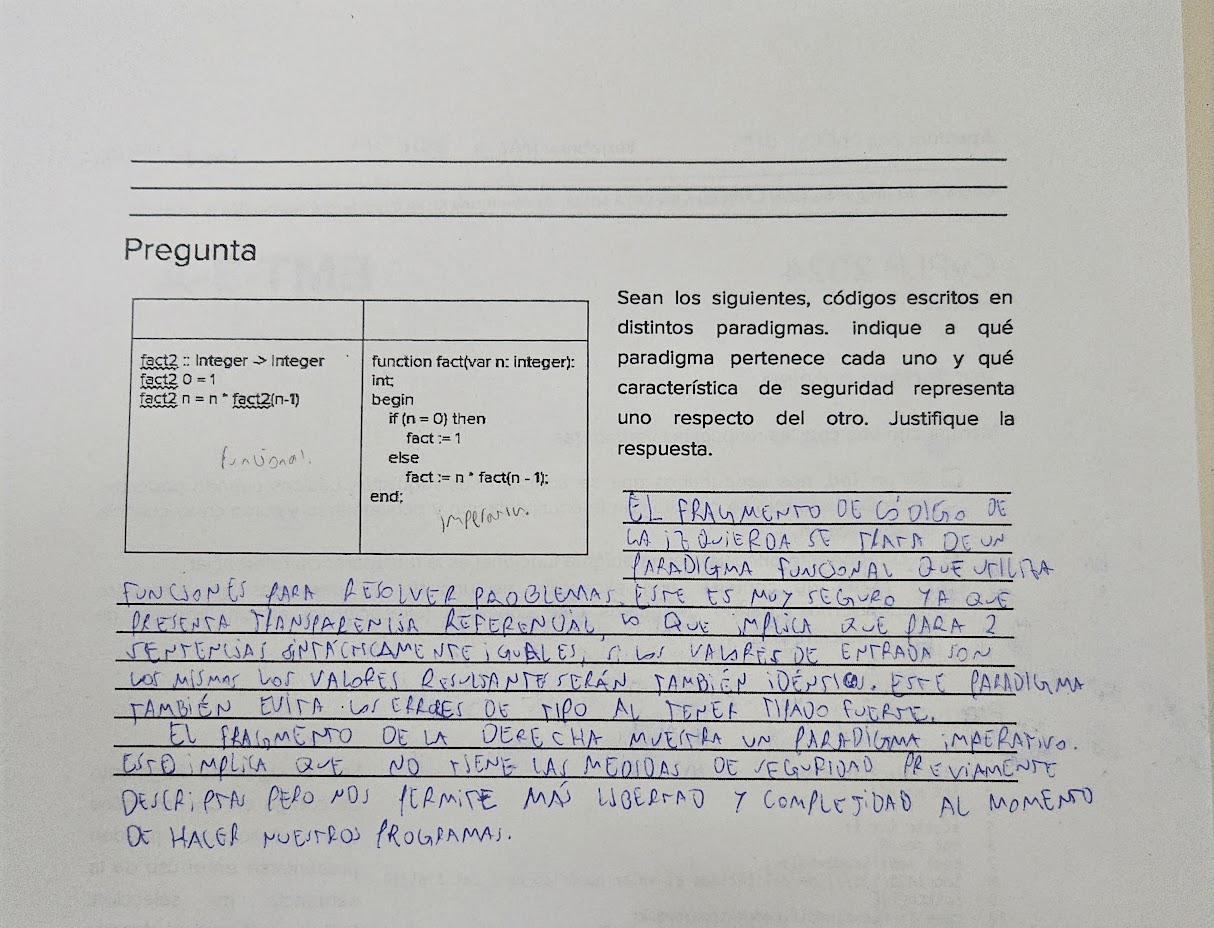 Pregunta
fact2 :: Integer -> Integer
fact2 0 = 1
fact2 n = n * fact2(n-1)
funcional.
function fact(var n: integer):
int;
begin
if (n = 0) then
fact := 1
else
fact := n * fact(n - 1);
end;
imperativo.
Sean los siguientes, códigos escritos en
distintos paradigmas. indique a qué
paradigma pertenece cada uno y qué
característica de seguridad representa
uno respecto del otro. Justifique la
respuesta.
EL FRAGMENTO DE CÓDIGO DE
LA IZQUIERDA SE TRATA DE UN
PARADIGMA FUNCIONAL QUE UTILIZA
FUNCIONES PARA RESOLVER PROBLEMAS. ESTE ES MUY SEGURO YA QUE
PRESENTA TRANSPARENCIA REFERENCIAL, LO QUE IMPLICA QUE PARA 2
SENTENCIAS SINTÁCTICAMENTE IGUALES, SI LOS VALORES DE ENTRADA SON
LOS MISMOS LOS VALORES RESULTANTE SERÁN TAMBIÉN IDÉNTICOS. ESTE PARADIGMA
TAMBIÉN EVITA LOS ERRORES DE TIPO AL TENER TIPADO FUERTE.
EL FRAGMENTO DE LA DERECHA MUESTRA UN PARADIGMA IMPERATIVO.
ESTO IMPLICA QUE NO TIENE LAS MEDIDAS DE SEGURIDAD PREVIAMENTE
DESCRIPTAS PERO NOS PERMITE MÁS LIBERTAD Y COMPLEJIDAD AL MOMENTO
DE HACER NUESTROS PROGRAMAS.